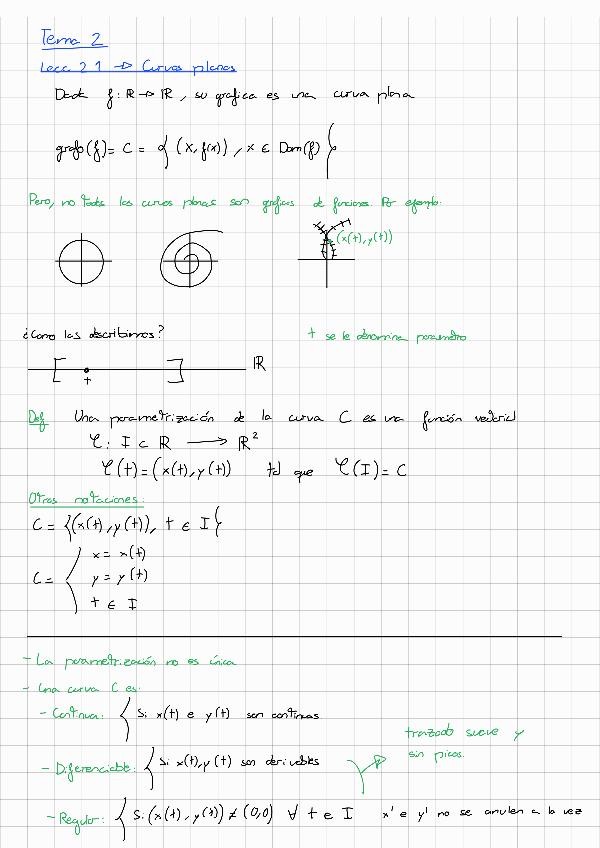 Tema 2
Lecc 2 1 → Curvas planas
Dada f: R → R, su grafica es una curva plana
grafo(f) = C = { (x, f(x)), x ∈ Dom(f) }
Pero, no todas las curvas planas son graficas de funciones. Por ejemplo:
(x(t), y(t))
¿Como las describimos?
t se le denomina parametro
R
t
Def Una parametrización de la curva C es una función vectorial
φ: I ⊂ R → R²
φ(t) = (x(t), y(t)) tal que φ(I) = C
Otras notaciones:
C = {(x(t), y(t)), t ∈ I}
C = { x = x(t)
y = y(t)
t ∈ I
- La parametrización no es única
- Una curva C es:
- Continua: { Si x(t) e y(t) son continuas
trazado suave y
sin picos.
- Diferenciable: { Si x(t), y(t) son derivables
- Regular: { Si (x(t), y(t)) ≠ (0,0) ∀ t ∈ I x' e y' no se anulen a la vez